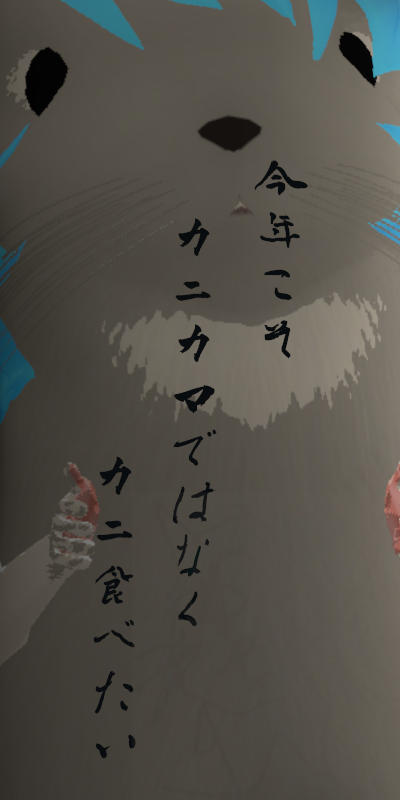 今年こそ
カニカマではなく
カニ食べたい